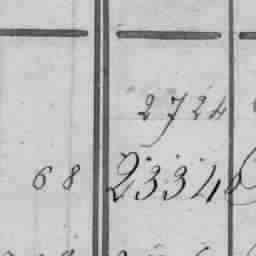 2724
68 23348